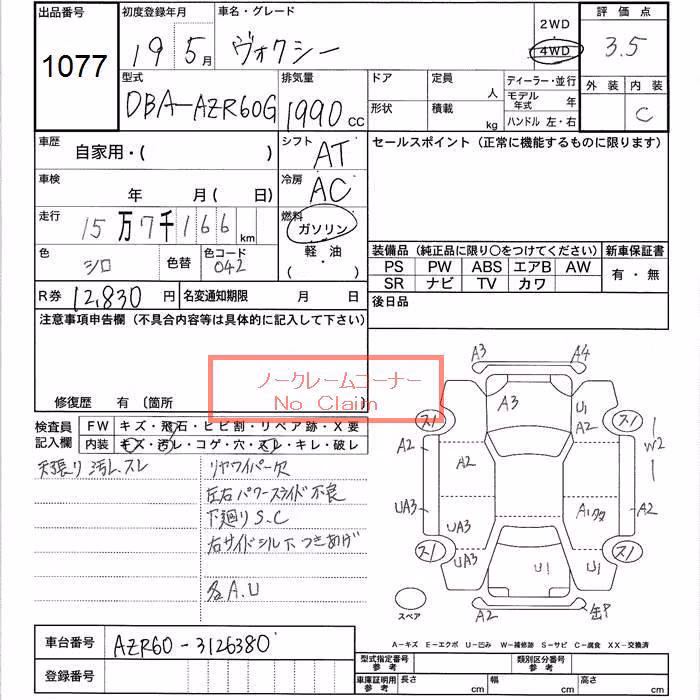 出品番号 初度登録年月 車名・グレード 2WD 評価点
1077 19 5月 ヴォクシー 4WD 3.5
型式 排気量 ドア 定員 人 ディーラー・並行 外装 内装
DBA-AZR60G 1990cc 形状 積載 kg モデル年式 年 C
ハンドル 左・右
車歴 自家用・( ) シフト AT セールスポイント(正常に機能するものに限ります)
車検 年 月( 日) 冷房 AC
走行 15万7千166km 燃料 ガソリン
色 シロ 色替 色コード 042 軽・油
( ・ )
装備品(純正品に限り○をつけてください) 新車保証書
PS PW ABS エアB AW 有・無
SR ナビ TV カワ
R券 12,830円 名変通知期限 月 日 後日品
注意事項申告欄(不具合内容等は具体的に記入して下さい)
ノークレームコーナー
No Claim
修復歴 有(箇所
検査員記入欄 FW キズ・飛石・ヒビ割・リペア跡・X要
内装 キズ・汚レ・コゲ・穴・スレ・キレ・破レ
天張り汚レ、スレ リヤワイパー欠
左右パワースライド不良
下廻りS.C
右サイドシル下つきあげ
A.U
A3 A4
A3 U1
スノ A2 スノ
A2 A2 W2
UA3 UA3 A1 A2
スノ UA3 U1 U1 スノ
スペア A2
A-キズ E-エクボ U-凹み W-補修跡 S-サビ C-腐食 XX-交換済
車台番号 AZR60-3126380
登録番号
型式指定番号参考 類別区分番号参考
車庫証明用参考 長さ cm 幅 cm 高さ cm